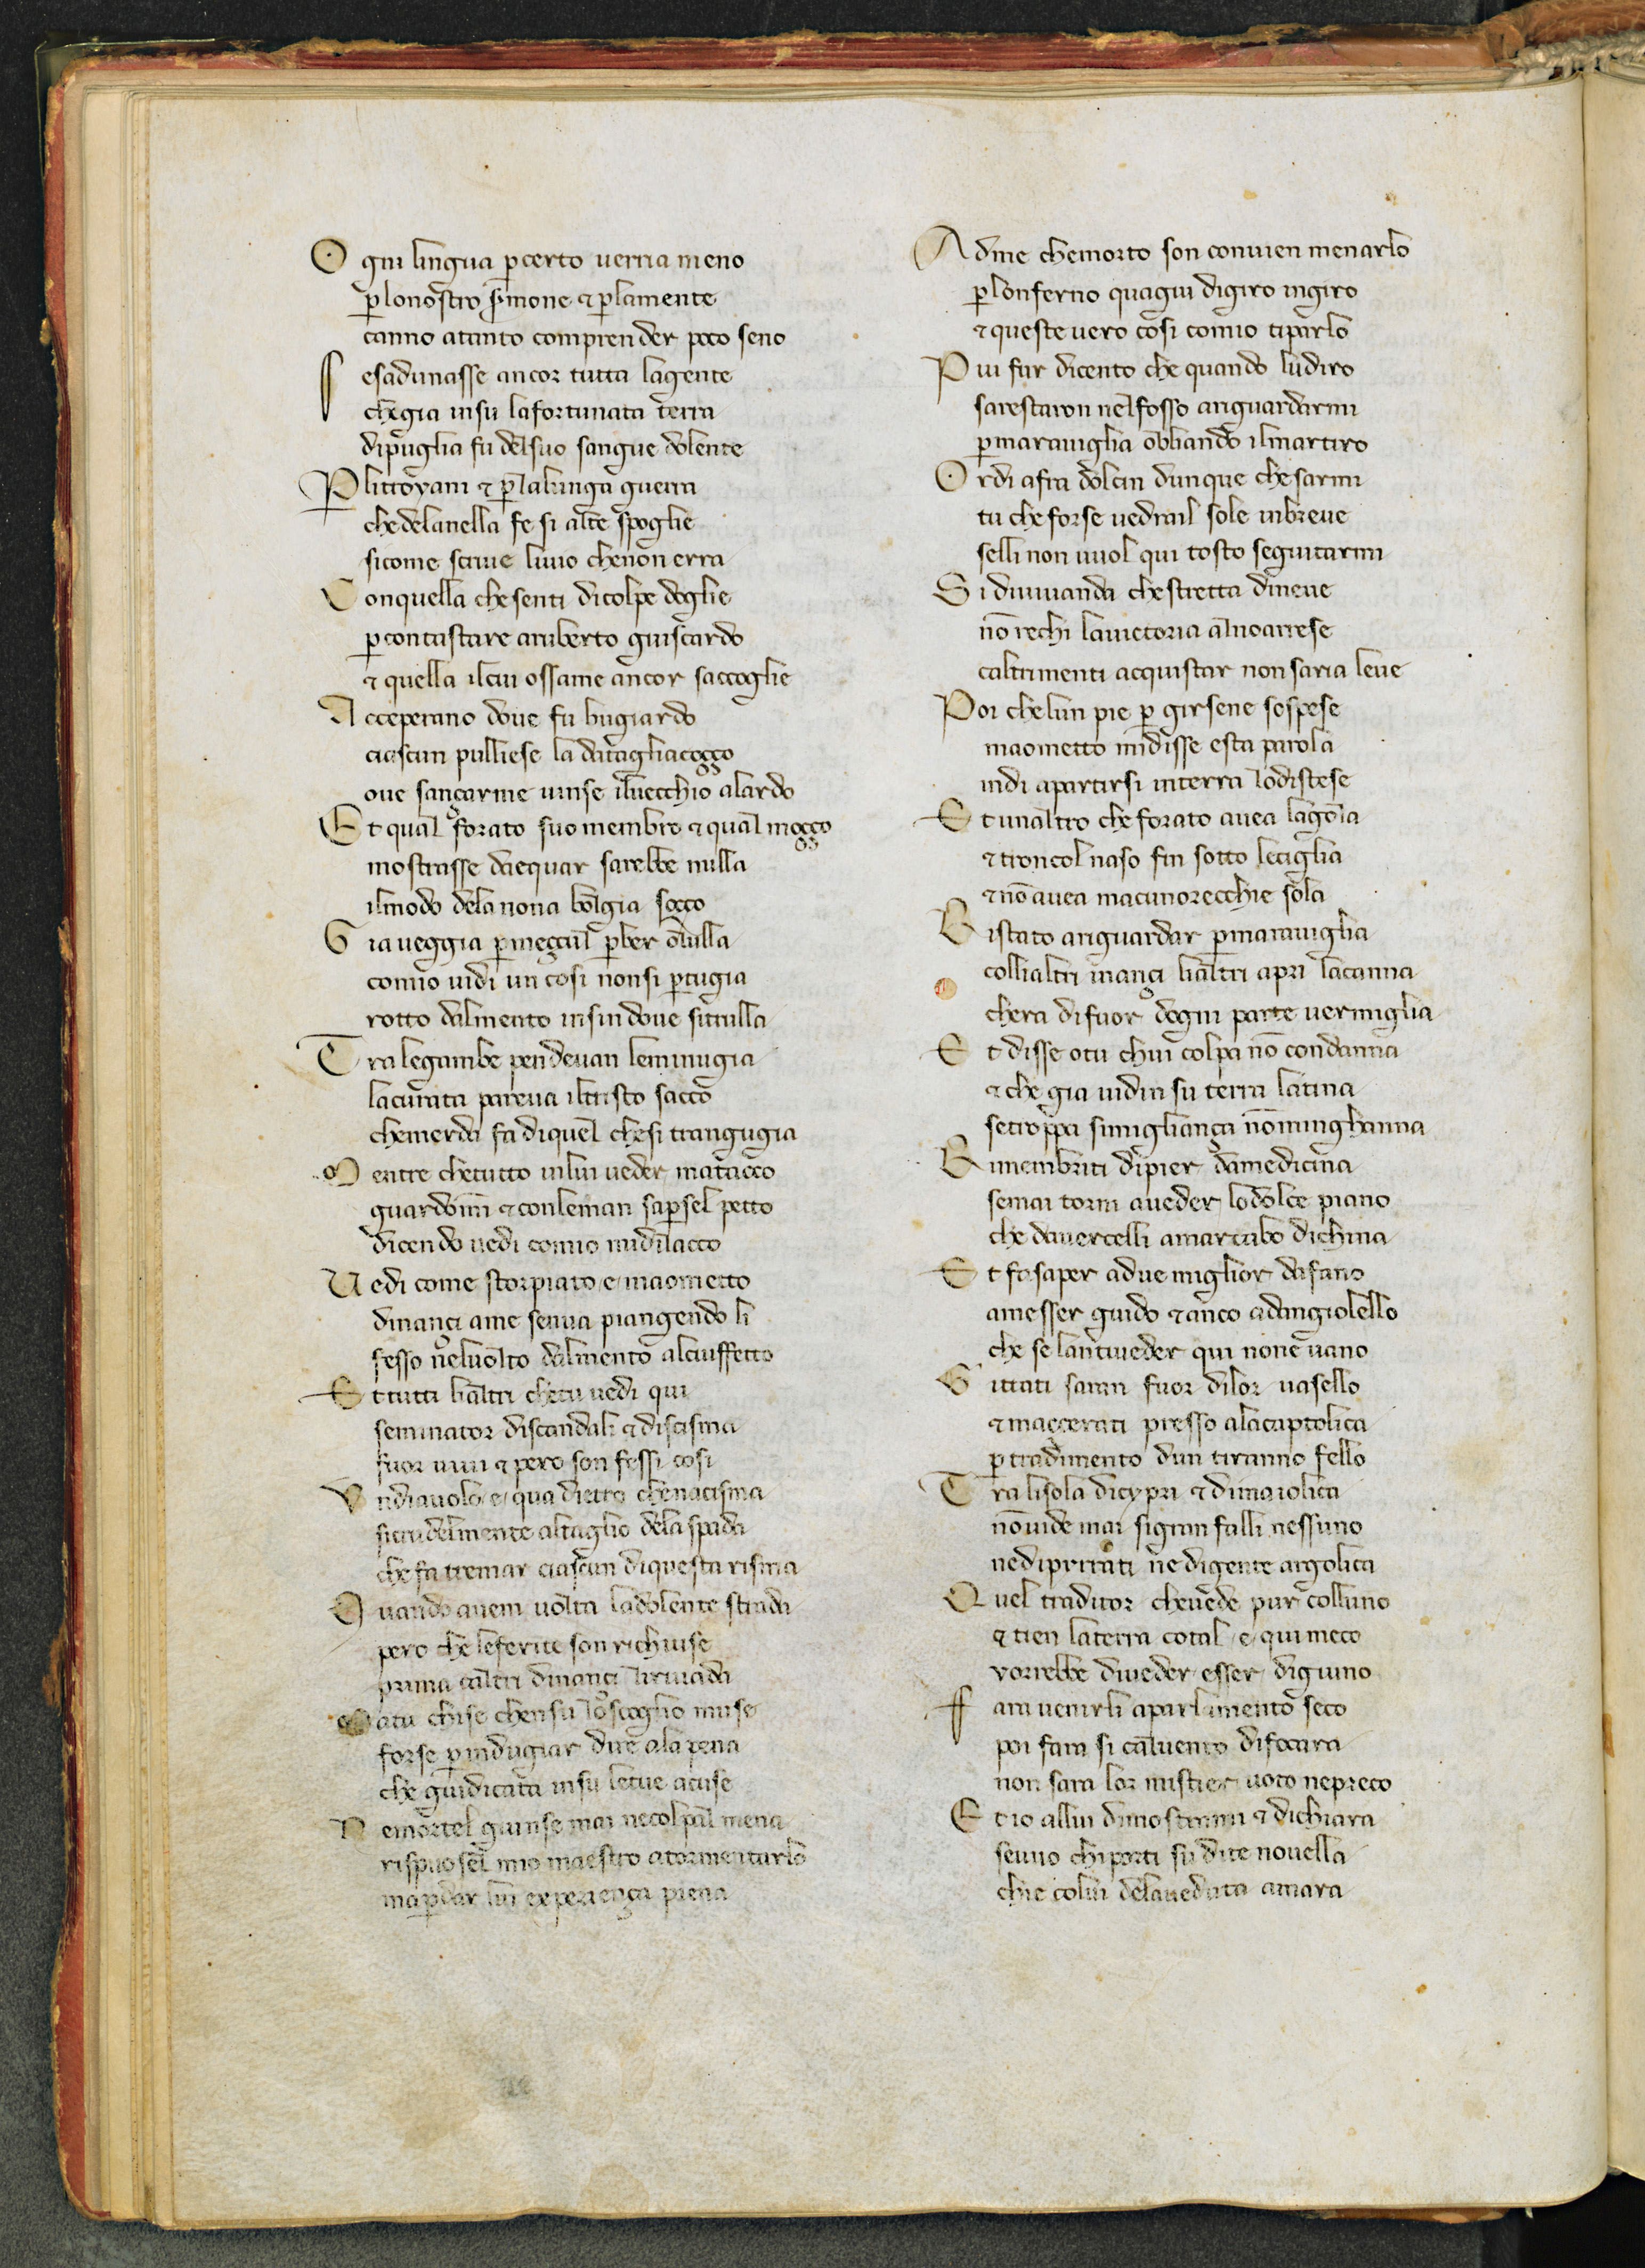 O gni lingua p̱certo uerria meno
p̱lonostro s̱mone ⁊ p̱lamente
canno atanto comprender poco seno
S esadunasse ancor tutta lagente
chegia insu lafortunata terra
dipuglia fu delsuo sangue dolente
P̱ litroyani ⁊ p̱ lalunga guerra
chedelanella fe si alte spoglie
sicome scriue liuio chenon erra
C onquella chesenti dicolpe doglie
p̱contastare aruberto guiscardo
⁊ quella ilcui ossame ancor saccoglie
A cceperano doue fu bugiardo
ciascun pulliese la datagliacoçço
oue sançarme uinse iluecchio alardo
E t qual forato suo membro ⁊ qual moçço
mostrasse daequar sarebbe nulla
ilmodo dela nona bolgia soçço
G ia ueggia p̱meççul p̱der olulla
comio uidi un cosi nonsi p̱tugia
rotto dalmento insindoue sitrulla
T ra legambe pendeuan leminugia
lacurata pareua iltristo sacco
chemerda fa diquel chesi trangugia
M entre chetutto inlui ueder matacco
guardomi ⁊ conleman sap̱sel petto
dicendo uedi comio midilacco
U edi come storpiato e maometto
dinançi ame senua piangendo li
fesso neluolto dalmento alciuffetto
E t tutti lialtri chetu uedi qui
seminator discandali ⁊ discisma
fuor uiui ⁊ pero son fessi cosi
U ndiauolo e qua dietro chenacisma
sicrudelmente altaglio dela spada
che fa tremar ciascun diquesta risma
Q uando auem uolta ladolente strada
pero che leferite son richiuse
prima caltri dinançi liriuada
M atu chise chensu loscoglio muse
forse p̱indugiar dire ala pena
che giudicata insu letue acuse
N emortel giunse mai necolpal mena
rispuosel mio maestro atormentarlo
map̱dar lui experiença piena
A dme chemorto son conuien menarlo
p̱lonferno quagiu digiro ingiro
⁊ queste uero cosi comio tiparlo
P iu fur dicento che quando ludiro
sarestaron nelfosso ariguardarmi
p̱marauiglia obliando ilmartiro
O rdi afra dolcin dunque chesarmi
tu che forse uedrail sole inbreue
selli non uuol qui tosto seguitarmi
S i diuiuanda chestretta dineue
nō rechi lauictoria alnoarrese
caltrimenti acquistar non saria leue
P oi chelun pie p̱ girsene sospese
maometto midisse esta parola
indi apartirsi interra lodistese
E t unaltro che forato auea lagola
⁊ troncol naso fin sotto leciglia
⁊ nō auea macunorecchie sola
R istato ariguardar p̱marauiglia
collialtri inançi lialtri apri lacanna
chera difuor dogni parte uermiglia
E t disse otu chui colpa nō condanna
⁊ che gia uidin su terra latina
setroppa simigliança nōminghanna
R imembriti dipier damedicina
semai torni aueder lodolce piano
che dauercelli amarcabo dichina
E t fasaper adue miglior dafano
amesser guido ⁊ anco adangiolello
che se lantiueder qui none uano
G ittati saran fuor dilor uasello
⁊ maççerati presso alacaptolica
p̱ tradimento dun tiranno fello
T ra lisola dicypri ⁊ dimaiolica
nōuide mai sigran falli nessuno
nedipirrati ne digente argolica
Q uel traditor cheuede pur colluno
⁊ tien laterra cotal e qui meco
vorrebbe diueder esser digiuno
F ara uenirli aparlamento seco
poi fara si caluento difocara
non sara lor mistier uoto nepreco
E t io allui dimostrami ⁊ dichiara
seuuo chiporti su dite nouella
chie colui delaueduta amara